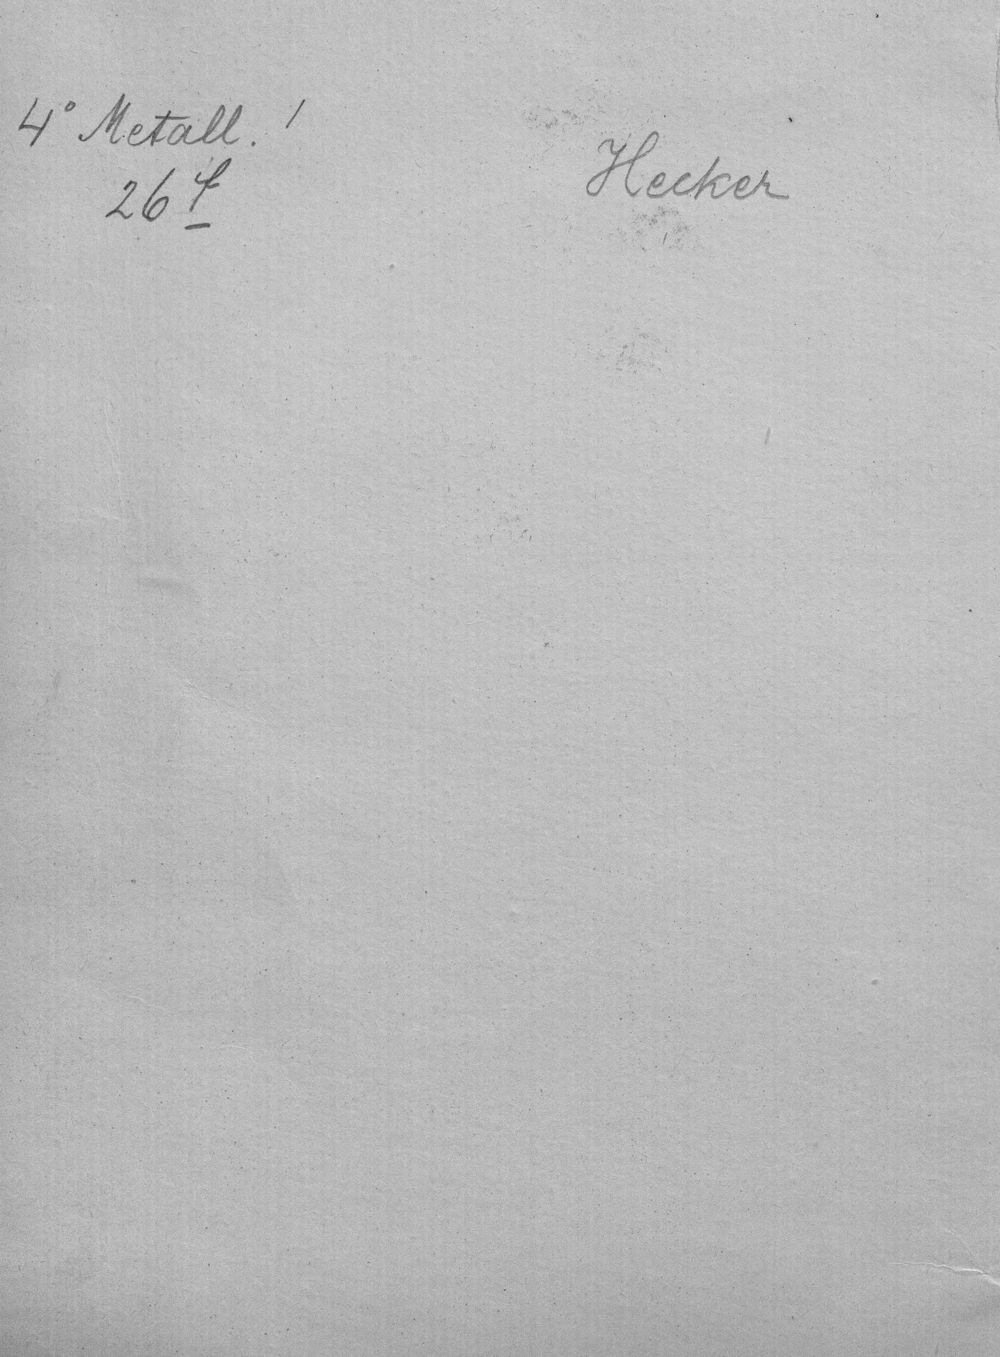 4° Metall. 1
26 f
Hecker